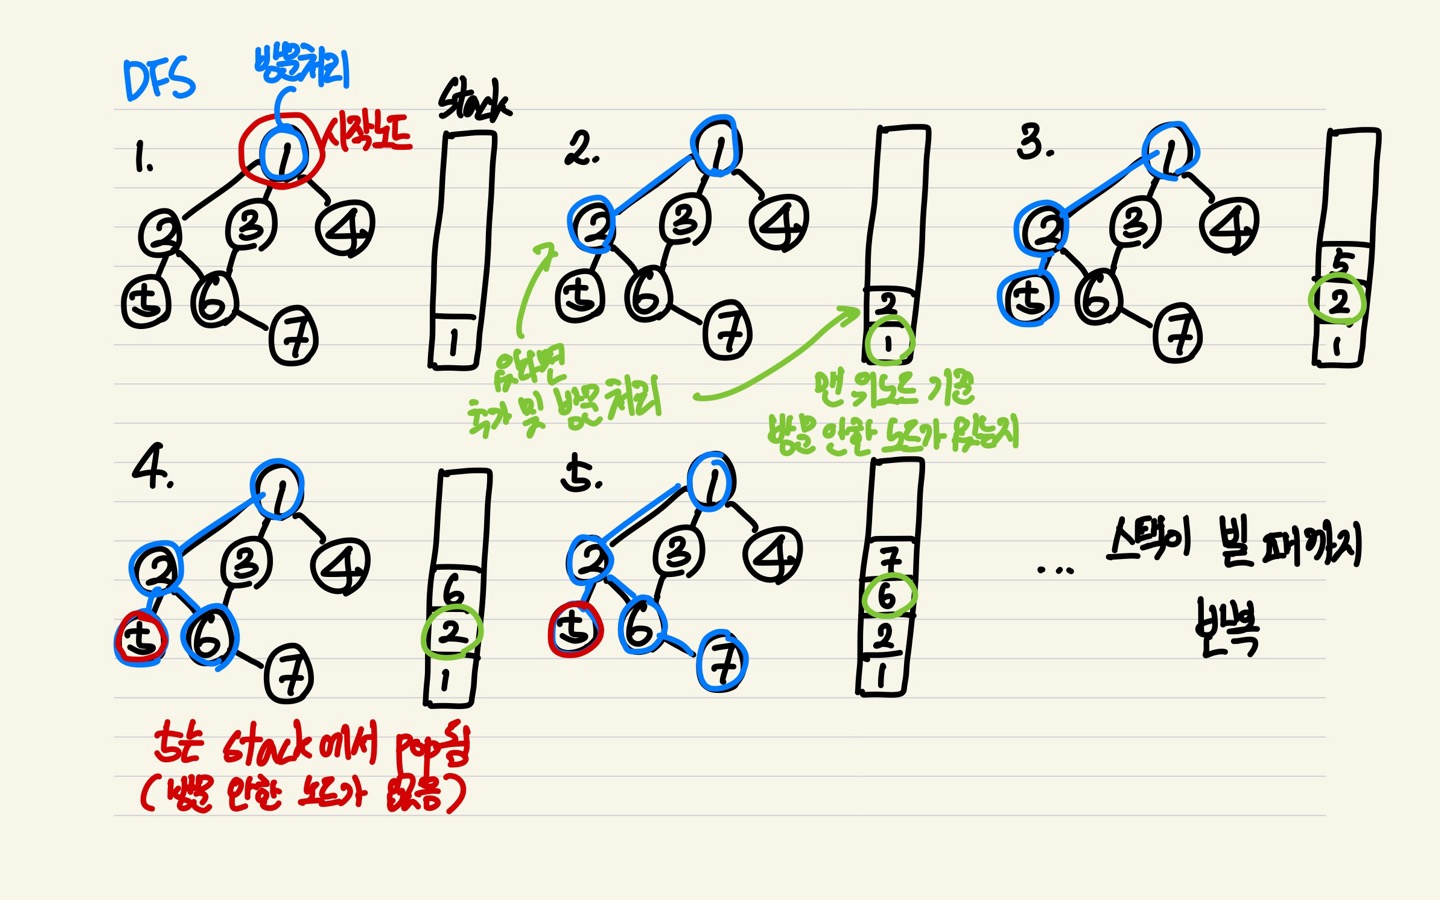 DFS
방문처리
Stack
1.
시작노드
1
2 3 4
5 6
7
1
2.
1
2 3 4
5 6
7
2
1
있다면
추가 및 방문 처리
맨 위노드 기준
방문 안한 노드가 있는지
3.
1
2 3 4
5 6
7
5
2
1
4.
1
2 3 4
5 6
7
6
2
1
5는 stack에서 pop됨
(방문 안한 노드가 없음)
5.
1
2 3 4
5 6
7
7
6
2
1
... 스택이 빌 때까지
반복